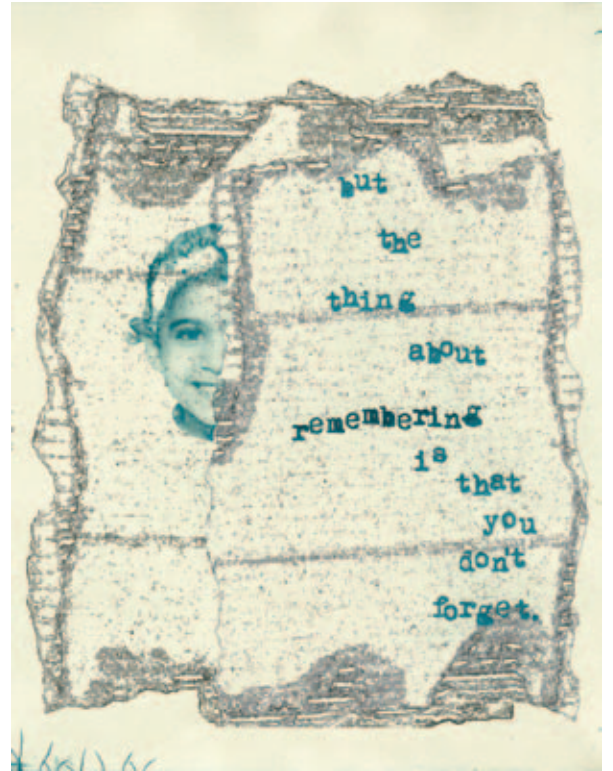 but
the
thing
about
remembering
is
that
you
don't
forget.